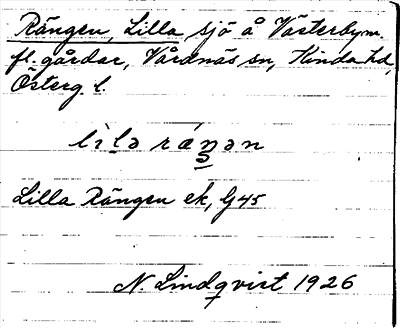 Rängen, Lilla sjö å Västerby m.
fl. gårdar, Vårdnäs sn, Kinda hd,
Österg. l.
Lilla Rängen ek, G45
N. Lindqvist 1926